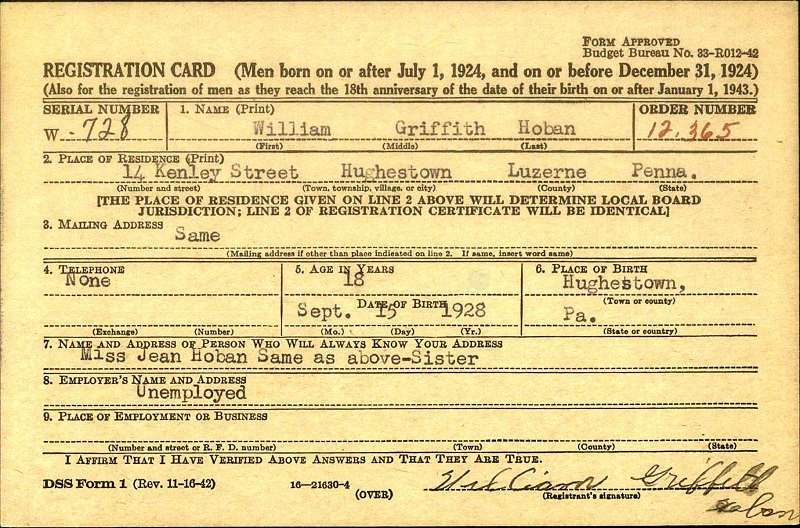 FORM APPROVED
Budget Bureau No. 33-R012-42
REGISTRATION CARD (Men born on or after July 1, 1924, and on or before December 31, 1924)
(Also for the registration of men as they reach the 18th anniversary of the date of their birth on or after January 1, 1943.)
SERIAL NUMBER 1. NAME (Print) ORDER NUMBER
W - 728 William Griffith Hoban 12,365
(First) (Middle) (Last)
2. PLACE OF RESIDENCE (Print)
14 Kenley Street Hughestown Luzerne Penna.
(Number and street) (Town, township, village, or city) (County) (State)
[THE PLACE OF RESIDENCE GIVEN ON LINE 2 ABOVE WILL DETERMINE LOCAL BOARD
JURISDICTION; LINE 2 OF REGISTRATION CERTIFICATE WILL BE IDENTICAL]
3. MAILING ADDRESS
Same
(Mailing address if other than place indicated on line 2. If same, insert word same)
4. TELEPHONE 5. AGE IN YEARS 6. PLACE OF BIRTH
None 18 Hughestown,
DATE OF BIRTH (Town or county)
Sept. 15 1928 Pa.
(Exchange) (Number) (Mo.) (Day) (Yr.) (State or country)
7. NAME AND ADDRESS OF PERSON WHO WILL ALWAYS KNOW YOUR ADDRESS
Miss Jean Hoban Same as above-Sister
8. EMPLOYER'S NAME AND ADDRESS
Unemployed
9. PLACE OF EMPLOYMENT OR BUSINESS
(Number and street or R. F. D. number) (Town) (County) (State)
I AFFIRM THAT I HAVE VERIFIED ABOVE ANSWERS AND THAT THEY ARE TRUE.
DSS Form 1 (Rev. 11-16-42) 16—21630-4 William Griffith
(OVER) (Registrant's signature)
Hoban